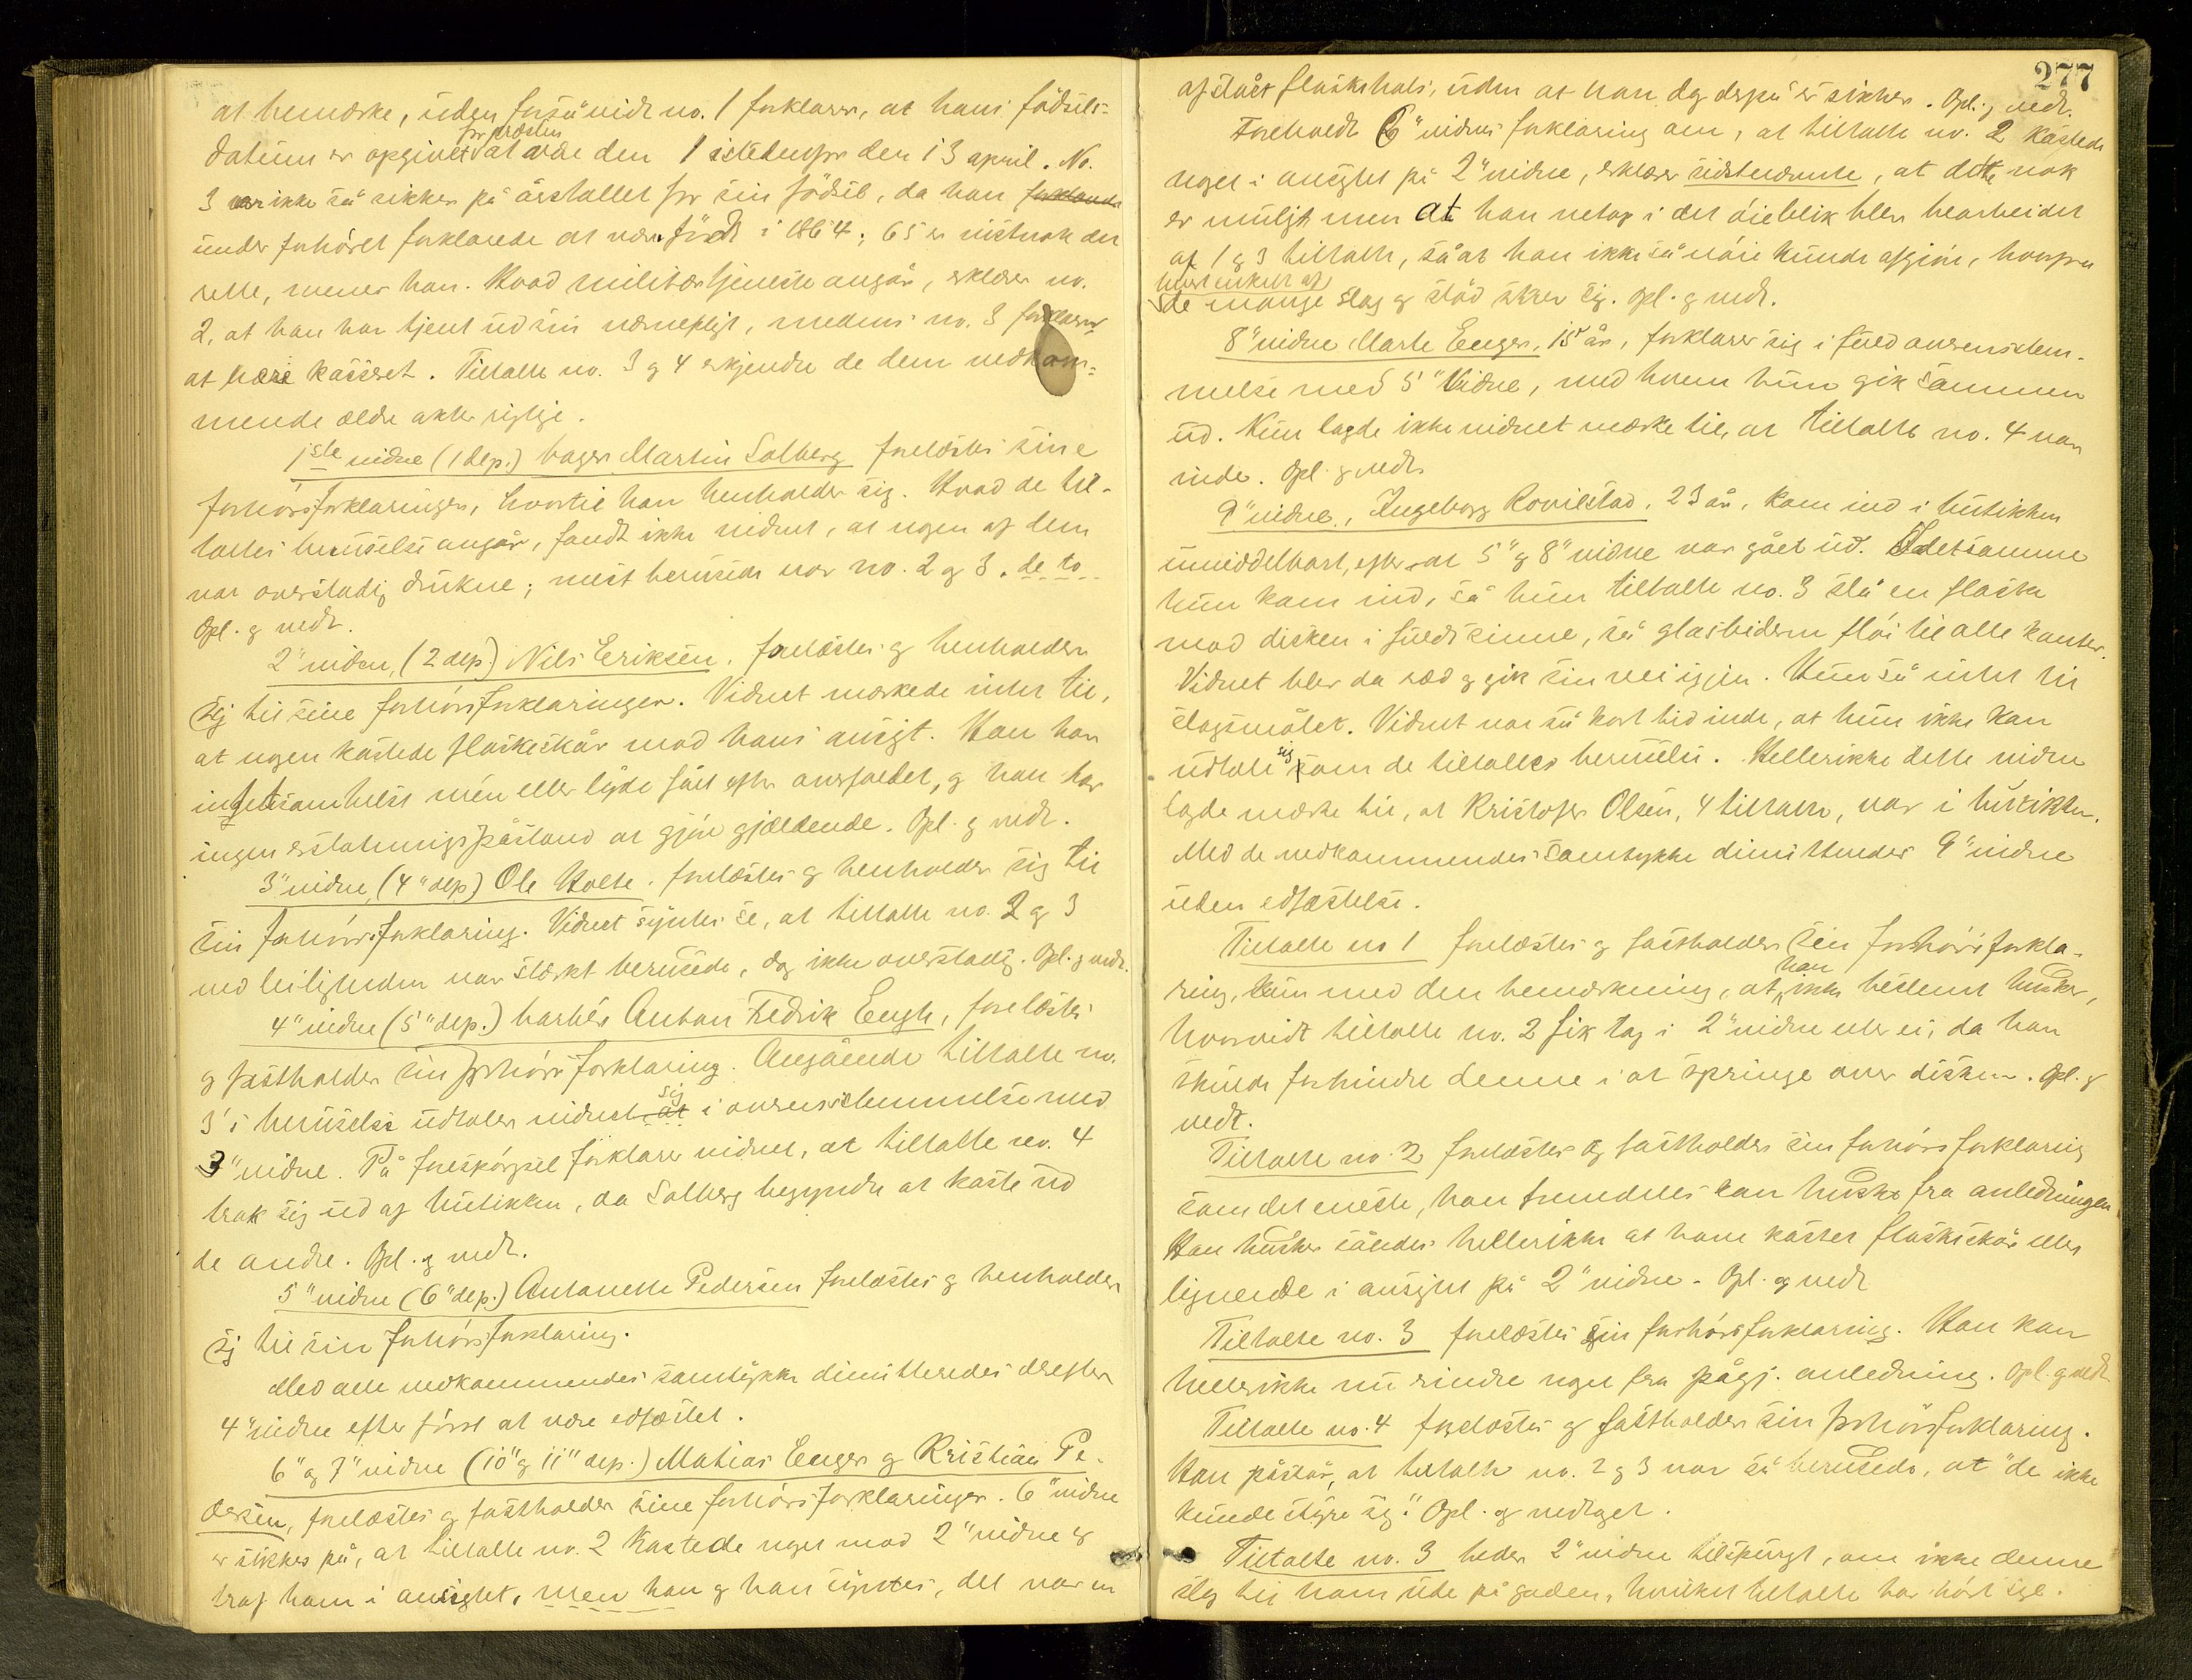 at bemærke, uden forsåvidt no. 1 forklarer, at hans fødsels-
for præsten
datum er opgivet at være den 1 istedenfor den 13 april. No.
3 er ikke så sikker på årstallet for sin fødsel, da han forklarede
under forhøret forklarede at være født i 1864; 65 er nistnok det
rette, mener han. Hvad militærtjeneste angår, erklærer no.
2, at han har tjent ud sin værnepligt, medens no. 3 forklarer
at være kasseret. Tiltalte no. 3 og 4 erkjendte de dem vedkom-
mende ældre akter rigtige.
1ste vidne (1 dep.) bager Martin Solberg forelæstes sine
forhørsforklaringer, hvortil han henholder sig. Hvad de til-
taltes beruselse angår, fandt ikke vidnet, at nogen af dem
var overstadig drukne; mest beruset var no. 2 og 3. de to
Opl. og vedt.
2" vidne, (2 dep.) Nils Eriksen. forelæstes og henholder
sig til sine forhørsforklaringer. Vidnet mærkede intet til,
at nogen kastede flaskeskår mod hans ansigt. Han har
intetsomhelst mén eller lyde fået efter overfaldet, og han har
ingen erstatningspåstand at gjøre gjældende. Opl. og vedt.
3" vidne, (4" dep) Ole Holte. forelæstes og henholder sig til
sin forhørsforklaring. Vidnet syntes se, at tiltalte no. 2 og 3
ved leiligheden var stærkt berusede, dog ikke overstadig. Opl. og vedt.
4" vidne (5" dep.) barbér Anton Fredrik Engh, forelæstes
og fastholder sin forhørsforklaring. Angående tiltalte no.
sig
3's beruselse udtaler vidnet at i overensstemmelse med
3" vidne. På forespørgsel forklarer vidnet, at tiltalte no. 4
trak sig ud af butikken, da Solberg begyndte at kaste ud
de andre. Opl. og vedt.
5" vidne (6" dep.) Antonette Pedersen forelæstes og henholder
sig til sin forhørsforklaring.
Med alle vedkommendes samtykke dimitteredes derefter
4" vidne efter først at være edfæstet.
6" og 7" vidne (10" og 11" dep.) Matias Enger og Kristian Pe-
dersen, forelæstes og fastholder sine forhørsforklaringer. 6" vidne
er sikker på, at tiltalte no. 2 kastede noget mod 2" vidne og
traf ham i ansigtet, men han og han syntes, det var en
277
afslået flaskehals, uden at han dog derpå er sikker. Opl. og vedt.
Foreholdt 6" vidnes forklaring om, at tiltalte no. 2 kastede
noget i ansigtet på 2" vidne, erklærer sidstnævnte, at dette nok
er muligt men at han netop i det øieblik blev bearbeidet
af 1 og 3 tiltalte, så at han ikke så nøie kunde afgjøre, hvorfra
hvert enkelt af
de mange slag og stød skrev sig. Opl. og vedt.
8" vidne Marte Enger, 15 år, forklarer sig i fuld overensstem-
melse med 5" vidne, med hvem hun gik sammen
ud. Hun lagde ikke vidnet mærke til, at tiltalte no. 4 var
inde. Opl. og vedt.
9" vidne, Ingeborg Rovilstad, 23 år, kom ind i butikken
umiddelbart, efter at 5" og 8" vidne var gået ud. Idetsamme
hun kom ind, så hun tiltalte no. 3 slå en flaske
mod disken i fuldt sinne, så glasbiderne fløi til alle kanter.
Vidnet blev da ræd og gik sin vei igjen. Hun så intet til
slagsmålet. Vidnet var så kort tid inde, at hun ikke kan
sig
udtale om de tiltaltes beruselse. Hellerikke dette vidne
lagde mærke til, at Kristofer Olsen, 4 tiltalte, var i butikken.
Med de vedkommendes samtykke dimitteredes 9" vidne
uden edfæstelse.
Tiltalte no 1 forelæstes og fastholder sin forhørsforkla-
han
ring, kun med den bemærkning, at ikke bestemt husker,
hvorvidt tiltalte no. 2 fik tag i 2" vidne eller ei, da han
skulde forhindre denne i at springe over disken. Opl. og
vedt.
Tiltalte no. 2 forelæstes og fastholder sin forhørsforklaring
som det eneste, han fremdeles kan huske fra anledningen.
Han husker således hellerikke at have kastet flaskeskår eller
lignende i ansigtet på 2" vidne. Opl. og vedt
Tiltalte no. 3 forelæstes sin forhørsforklaring. Han kan
hellerikke nu erindre noget fra pågj. anledning. Opl. og vedt
Tiltalte no. 4 forelæstes og fastholder sin forhørsforklaring.
Han påstår, at tiltalte no. 2 og 3 var så berusede, at "de ikke
kunde styre sig." Opl. og vedtaget.
Tiltalte no. 3 beder 2" vidne tilspurgt, om ikke denne
slog til ham ude på gaden, hvilket tiltalte har hørt sige.